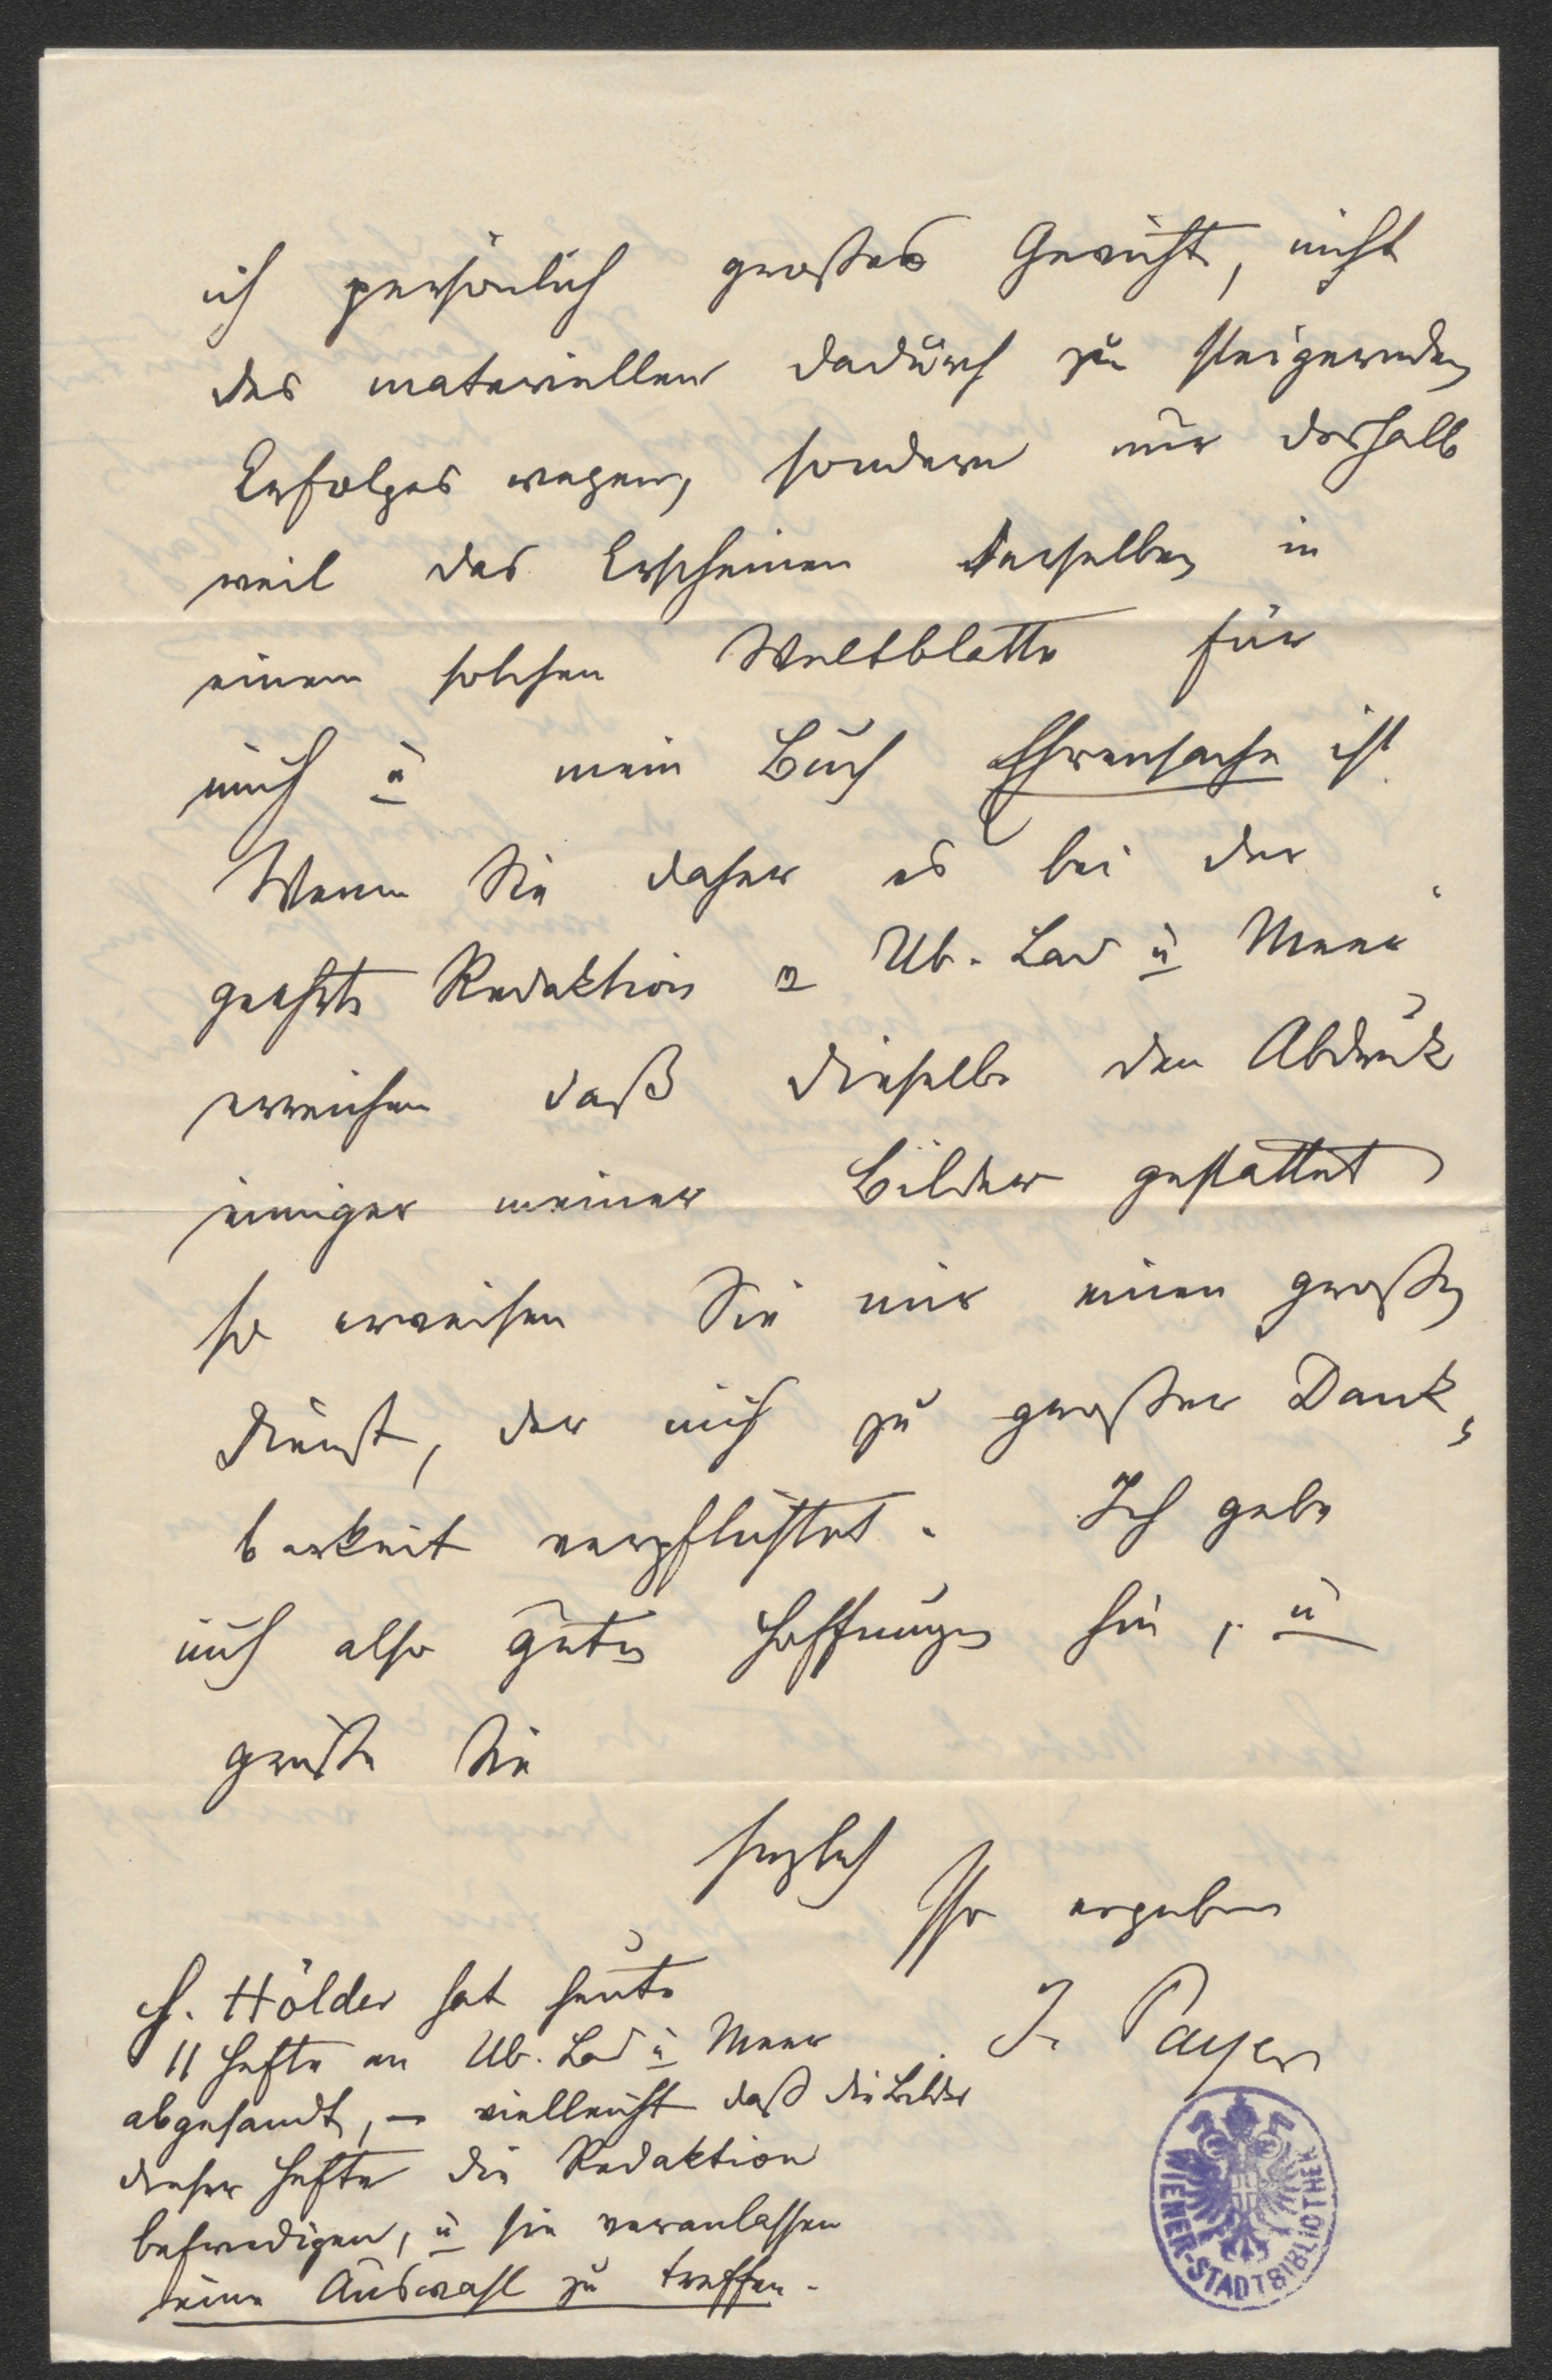 ich persönlich großes Gewicht, nicht
des materiellen dadurch zu steigernden
Erfolges wegen, sondern nur deshalb
weil das Erscheinen derselben in
einem solchen Weltblatte für
mich u mein Buch Ehrensache ist.
Wenn Sie daher es bei der
geehrten Redaktion v Ub. Land u Meer
erreichen daß dieselbe den Abdruk
einiger meiner Bilder gestattet
so erweisen Sie mir einen großen
Dienst, der mich zu großer Dank-
barkeit verpflichtet. Ich gebe
mich also guten Hoffnungen hin, u
grüße Sie
herzlich
Ihr ergebener
J. Payer
H. Hölder hat heute
11 Hefte an Ub. Land u Meer
abgesandt, – vielleicht daß die Bilder
dieser Hefte die Redaktion
befriedigen, u sie veranlassen
eine Auswahl zu treffen.
WIENER-STADTBIBLIOTHEK